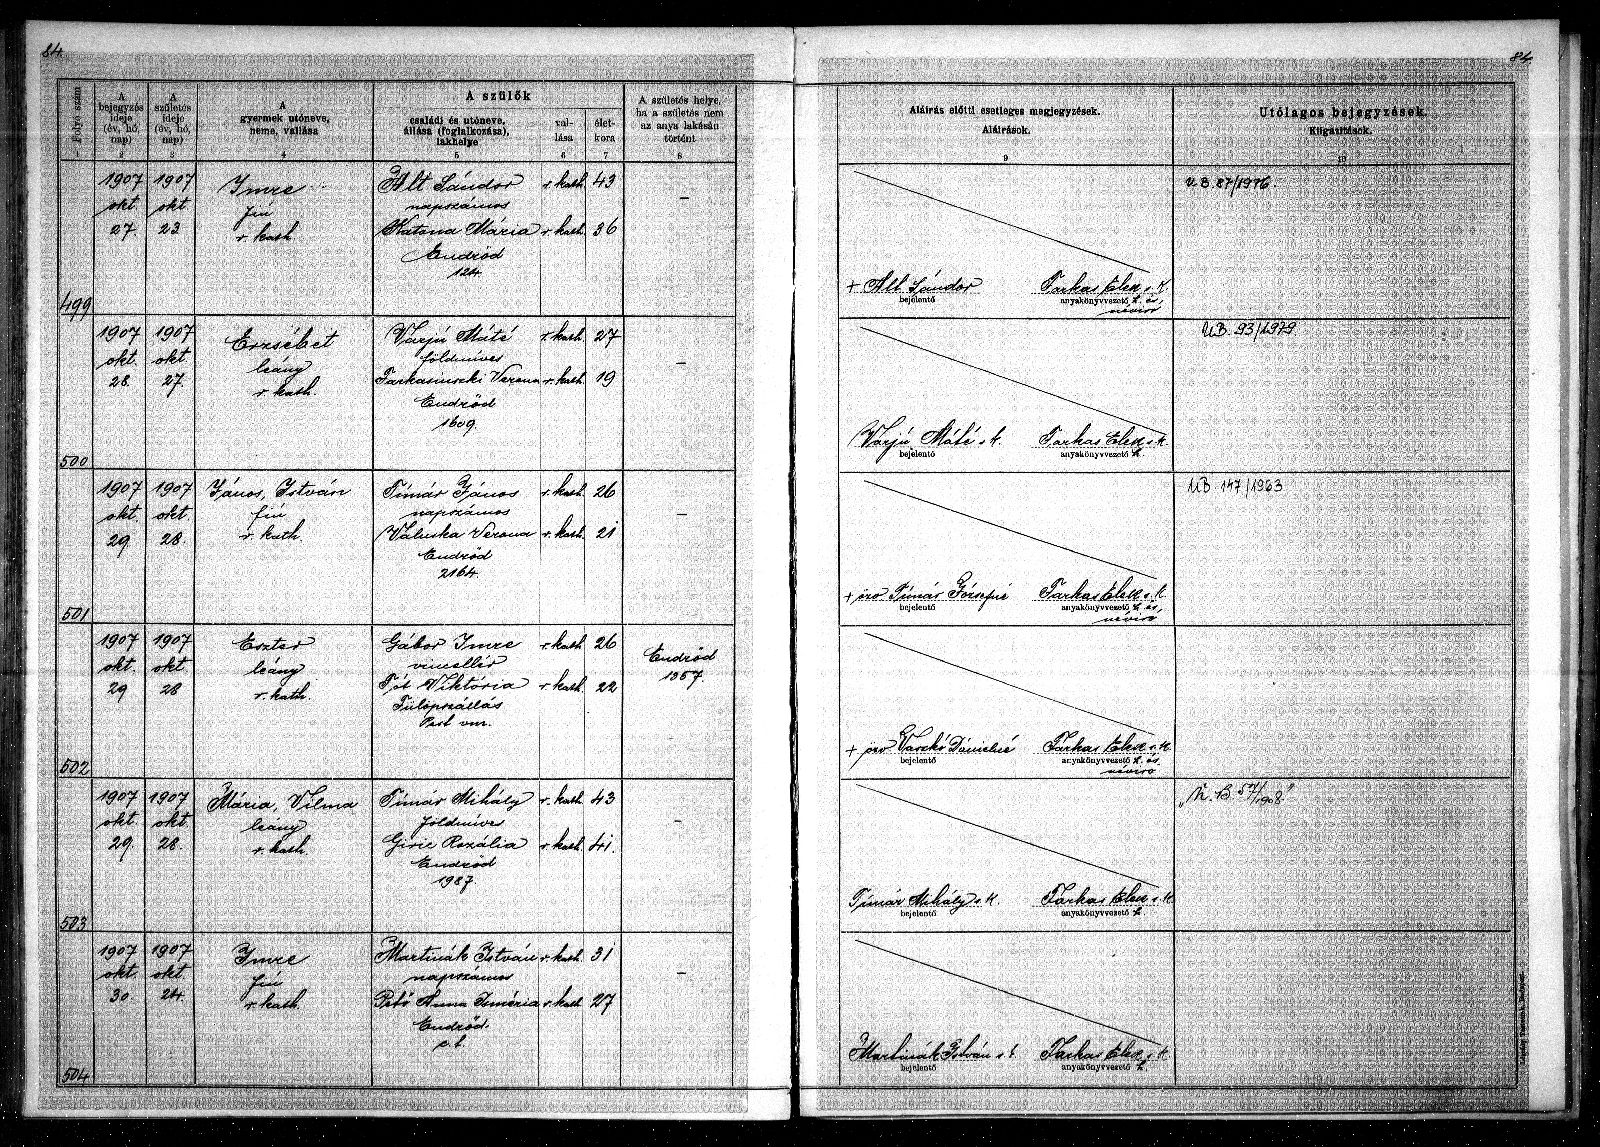 84
84
Folyó szám
A bejegyzés ideje (év, hó, nap)
A születés ideje (év, hó, nap)
A gyermek utóneve, neme, vallása
A szülők
családi és utóneve, állása (foglalkozása), lakhelye
vallása
életkora
A születés helye, ha a születés nem az anya lakásán történt
Aláírás előtti esetleges megjegyzések.
Aláírások.
Utólagos bejegyzések.
Kiigazítások.
1 2 3 4 5 6 7 8 9 10
499
1907 okt. 27
1907 okt 23
Imre
fiú
r. kath
Alt Sándor r. kath. 43
napszámos
Katona Mária r. kath. 36
Endrőd
124
–
+ Alt Sándor
bejelentő
Farkas Elek s. k.
anyakönyvvezető h. és,
névíró
U.B. 87/1976.
500
1907 okt. 28.
1907 okt. 27.
Erzsébet
leány
r. kath.
Varjú Máté r. kath. 27
földmíves
Farkasinszki Verona r. kath. 19
Endrőd
1609.
–
Varjú Máté s. k.
bejelentő
Farkas Elek s. k.
anyakönyvvezető h.
UB. 93/1979
501
1907 okt. 29
1907 okt. 28.
János, István
fiú
r. kath.
Tímár János r. kath. 26
napszámos
Valuska Verona r. kath. 21
Endrőd
2164.
–
+ özv Tímár Józsefné
bejelentő
Farkas Elek s. k.
anyakönyvvezető h. és,
névíró
UB 147/1963
502
1907 okt. 29
1907 okt 28
Eszter
leány
r. kath.
Gábor Imre r. kath. 26
vincellér
Tót Viktória r. kath. 22
Fülöpszállás
Pest vm.
Endrőd
1357
+ özv Vaszkó Dánielné
bejelentő
Farkas Elek s. k.
anyakönyvvezető h. és.
névíró
503
1907 okt. 29.
1907 okt. 28.
Mária, Vilma
leány
r. kath.
Tímár Mihály r. kath. 43
földmíves
Giric Rozália r. kath. 41.
Endrőd
1987.
–
Tímár Mihály s. k.
bejelentő
Farkas Elek s. k.
anyakönyvvezető h.
„U. B. 57/908"
504
1907 okt. 30
1907 okt 24
Imre
fiú
r. kath.
Martinák István r. kath. 31
napszámos
Pető Anna Imézia r. kath. 27
Endrőd.
–
Martinák István s. k.
bejelentő
Farkas Elek s. k.
anyakönyvvezető h.